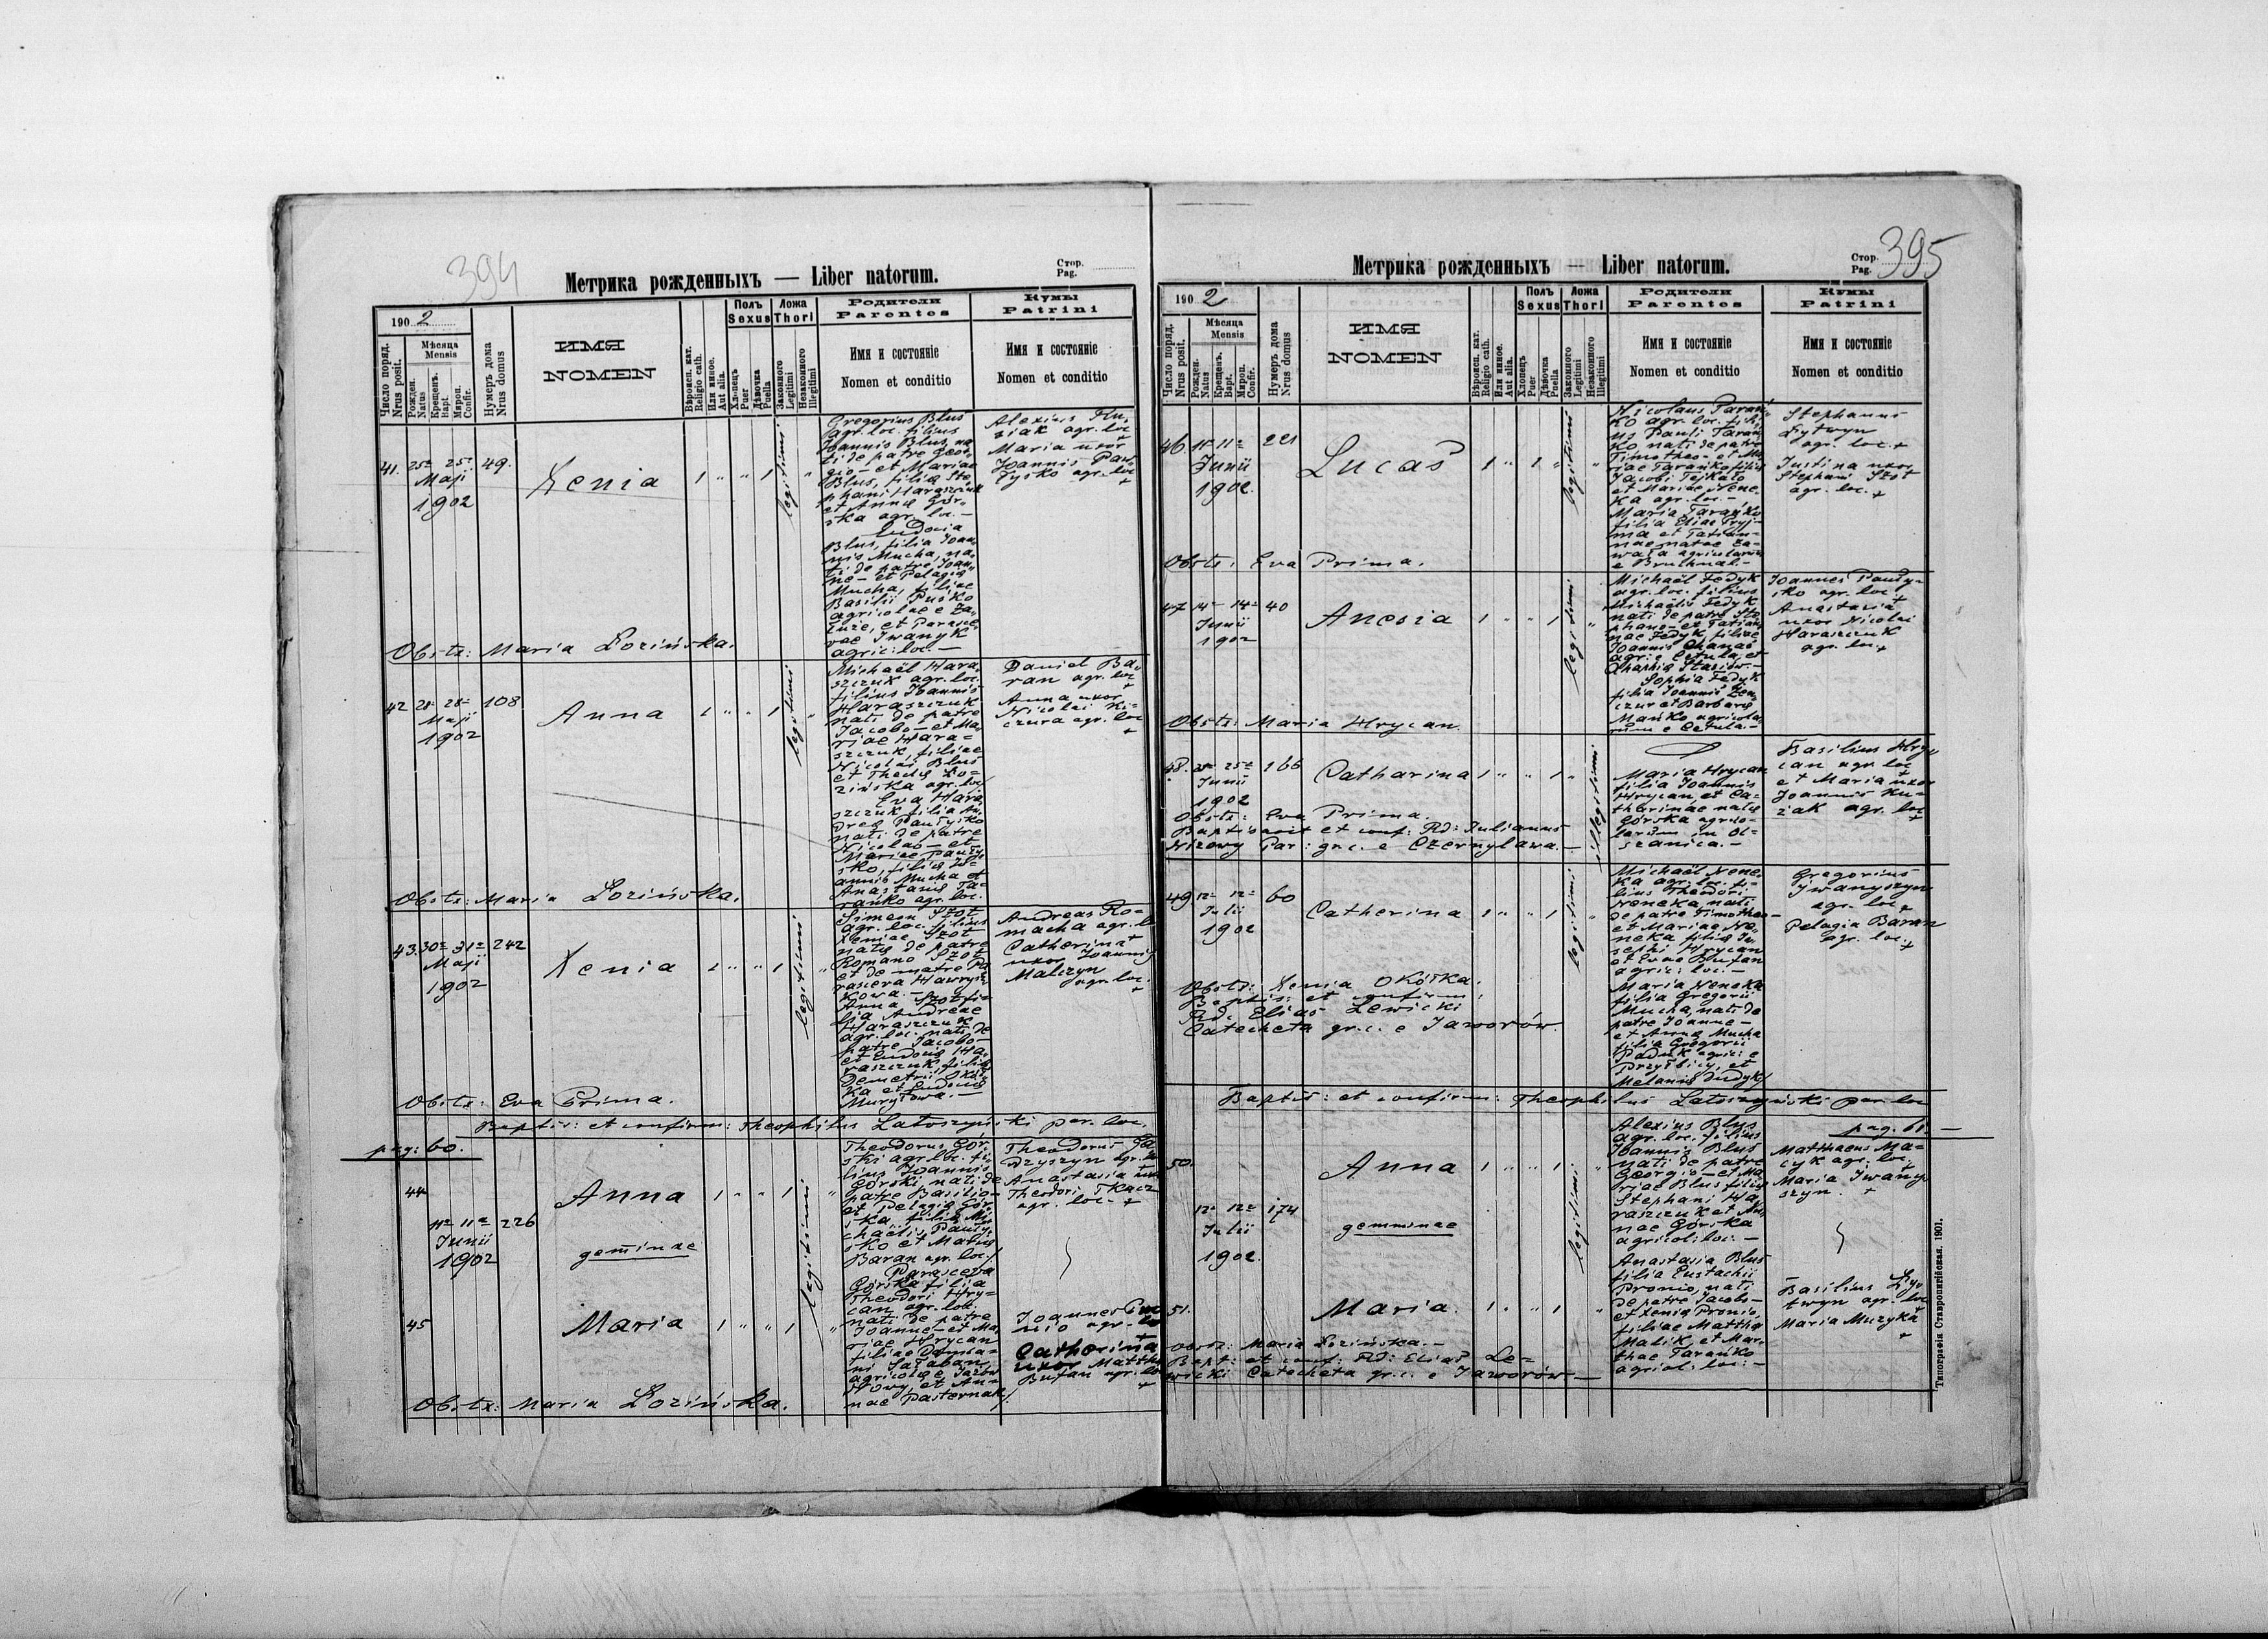 394
Метрика рожденныхъ — Liber natorum.
Стор.
Pag.
190 2
Число поряд.
Nrus posit.
Мѣсяца
Mensis
Рожден.
Natus
Крещенъ.
Bapt.
Мироп.
Confir.
Нумеръ дома
Nrus domus
ИМЯ
NOMEN
Вѣроисп. кат.
Religio cath.
Или иное.
Aut alia.
Полъ
Sexus
Хлопецъ
Puer
Дѣвочка
Puella
Ложа
Thori
Законного
Legitimi
Незаконного
Illegitimi
Родители
Parentes
Имя и состояніе
Nomen et conditio
Кумы
Patrini
Имя и состояніе
Nomen et conditio
41. 25a 25a 49.
Maji
1902
Xenia
1 " " 1 "
legitimi
Gregorius Blus
agr. loc. filius
Joannis Blus, na-
ti de patre Geor-
gio - et Mariae
Blus, filia Ste-
phani Haraszczuk
et Annae Gór-
ska agr. loc. -
Eudocia
Blus, filia Joan-
nis Mucha, na-
ti de patre Joan-
ne - et Pelagia
Mucha, filiae
Basilii Puśko
agricolae e Za-
łuże, et Parasce-
vae Iwanyk
agric: loc. -
Alexius Ku-
ziak agr. loc
+
Maria uxor
Joannis Pań-
tysko agr. loc
+
Obstx: Maria Łozińska.
42 28a 28a 108
Maji
1902
Anna
1 " " 1 "
legitimi
Michaël Hara-
szczuk agr. loc.
filius Joannis
Haraszczuk
nati de patre
Jacobo - et Ma-
riae Hara-
szczuk, filiae
Nicolai Blus
et Theclae Ło-
zińska agr. loc/
Eva Hara-
szczuk filia An-
dreae Pańtysko
nati de patre
Nicolao - et
Mariae Pańty-
sko, filiae Jo-
annis Mucha et
Anastasiae Ta-
rańko agr. loc.
Daniel Ba-
ran agr. loc
+
Anna uxor
Nicolai Ki-
czura agr. loc
+
Obstx: Maria Łozińska.
43. 30a 31a 242
Maji
1902
Xenia
1 " " 1 "
legitimi
Simeon Szot
agr. loc. filius
Xeniae Szot
natae de patre
Romano Szot
et de matre Pa-
rascera Hawryś-
kowa. -
Anna Szot fi-
lia Andreae
Haraszczuk
agr. loc. nati de
patre Jacobo -
et Eudocia Ha-
raszczuk, filiae
Demetrii Okól-
ka et Eudocia
Muryłowa. -
Andreas Ro-
macha agr. l
+
Catherina
uxor Joannis
Malczyn
agr. loc.
+
Obstx: Eva Prima.
Baptis: et confirm: Theophilus Łatoszyński par. loc.
pag: 60.
44
11a 11a 226
Junii
1902
Anna
geminae
1 " " 1 "
legitimi
Theodorus Gór-
ski agr. loc. fi-
lius Joannis
Górski nati de
patre Basilio -
et Pelagia Gór-
ska, filia Mi-
chaëlis Pańty-
sko et Maria
Baran agr. loc./
Parasceva
Górska filia
Theodori Hry-
can agr. loc.
nati de patre
Joanne - et Ma-
riae Hrycan
filiae Damia-
ni Sałaban
agricolae e Jażów
Nowy, et An-
nae Pasternak/
Theodorus Ga-
dzyszyn agr.
Anastasia uxor
Theodori Tkacz
agr. loc. +
45
Maria
1 " " 1 "
Joannes
agr. loc
+
Catherina
uxor Matth
Bufan agr. loc
+
Obstx: Maria Łozińska.
Метрика рожденныхъ — Liber natorum.
Стор.
Pag. 395
190 2
Число поряд.
Nrus posit.
Мѣсяца
Mensis
Рожден.
Natus
Крещенъ.
Bapt.
Мироп.
Confir.
Нумеръ дома
Nrus domus
ИМЯ
NOMEN
Вѣроисп. кат.
Religio cath.
Или иное.
Aut alia.
Полъ
Sexus
Хлопецъ
Puer
Дѣвочка
Puella
Ложа
Thori
Законного
Legitimi
Незаконного
Illegitimi
Родители
Parentes
Имя и состояніе
Nomen et conditio
Кумы
Patrini
Имя и состояніе
Nomen et conditio
46 11a 11a 221
Junii
1902.
Lucas
1 " 1 " "
legitimi
Nicolaus Tarań-
ko agr. loc. fili-
us Pauli Tarań-
ko nati de patre
Timotheo - et Ma-
riae Tarańko filiae
Jacobi Tejkało
et Mariae Nene-
ka agr. loc. -
Maria Tarańko
filia Eliae Pryj-
ma et Tatian-
nae natae Za-
wała agricolarum
e Bruchnal. -
Stephanus
Łytwyn
agr. loc. +
Justina uxor
Stephani Szot
agr. loc. +
Obstx. Eva Prima.
47 14a 14a 40
Junii
1902
Anesia
1 " " 1 "
legitimi
Michaël Fedyk
agr. loc. filius
Michaëlis Fedyk
nati de patre Ste-
phano - et Tatian-
nae Fedyk, filiae
Joannis Chanas
agr: e Cetula, et
Ahaphia Stasiów. -
Sophia Fedyk
filia Joannis Zen-
czur et Barbara
Mańko agricola-
rum e Cetula. -
Joannes Pańty-
sko agr. loc.
+
Anastasia
uxor Nicolai
Haraszczuk
agr. loc. +
Obstx: Maria Hrycan.
48. 25a 25a 166
Junii
1902
Catharina
1 " " 1 "
illegitimi
Maria Hrycan
filia Joannis
Hrycan et Ca-
tharinae nata
Górska agrico-
larum in Ol-
szanica. -
Basilius Hry-
can agr. loc
+
et Maria uxor
Joannis Ku-
ziak agr. loc
+
Obstx: Eva Prima.
Baptisavit et conf: Rd: Julianus
Nizowy Par: gr. c. e Czernyława. -
49 12a 12a 60
Julii
1902
Catherina
1 " " 1 "
legitimi
Michaël Nene-
ka agr. loc. fi-
lius Theodori
Neneka, nati
de patre Timotheo -
et Mariae Ne-
neka filia Jo-
sephi Hrycan
et Evae Bufan
agric: loc. -
Maria Neneka
filia Gregorii
Mucha, nati de
patre Joanne -
et Anna Mucha
filia Gregorii
Paduk agric: e
Przyłbicy, et
Melania Dudyk/
Gregorius
Iwanyszyn
agr. loc.
+
Pelagia Baran
agr. loc.
+
Obstx: Xenia Okółka.
Baptis: et confirm:
Rd. Elias Lewicki
Catecheta gr. c. e Jaworów.
Baptis: et confirm: Theophilus Łatoszyński par loc
pag. 61. -
50.
12a 12a 174
Julii
1902.
Anna
gemminae
1 " " 1 "
legitimi
Alexius Blus
agr. loc. filius
Joannis Blus
nati de patre
Georgio - et Ma-
riae Blus filia
Stephani Ha-
raszczuk et An-
nae Górska
agricol: loc: -
Anastasia Blus
filia Eustachii
Pronio, nati
de patre Jacobo -
et Xenia Pronio,
filiae Matthae
Malik, et Mar-
thae Tarańko
agricol: loc: -
Matthaeus Ma-
cyk agr. loc.
+
Maria Iwany-
szyn. +
51.
Maria.
1 " " 1 "
Basilius Ły-
twyn agr. loc
+
Maria Muzyka
+
Obstx: Maria Łozińska. -
Bapt: et conf: Rd: Elias Le-
wicki Catecheta gr. c. e Jaworów -
Типографія Ставропигійская. 1901.